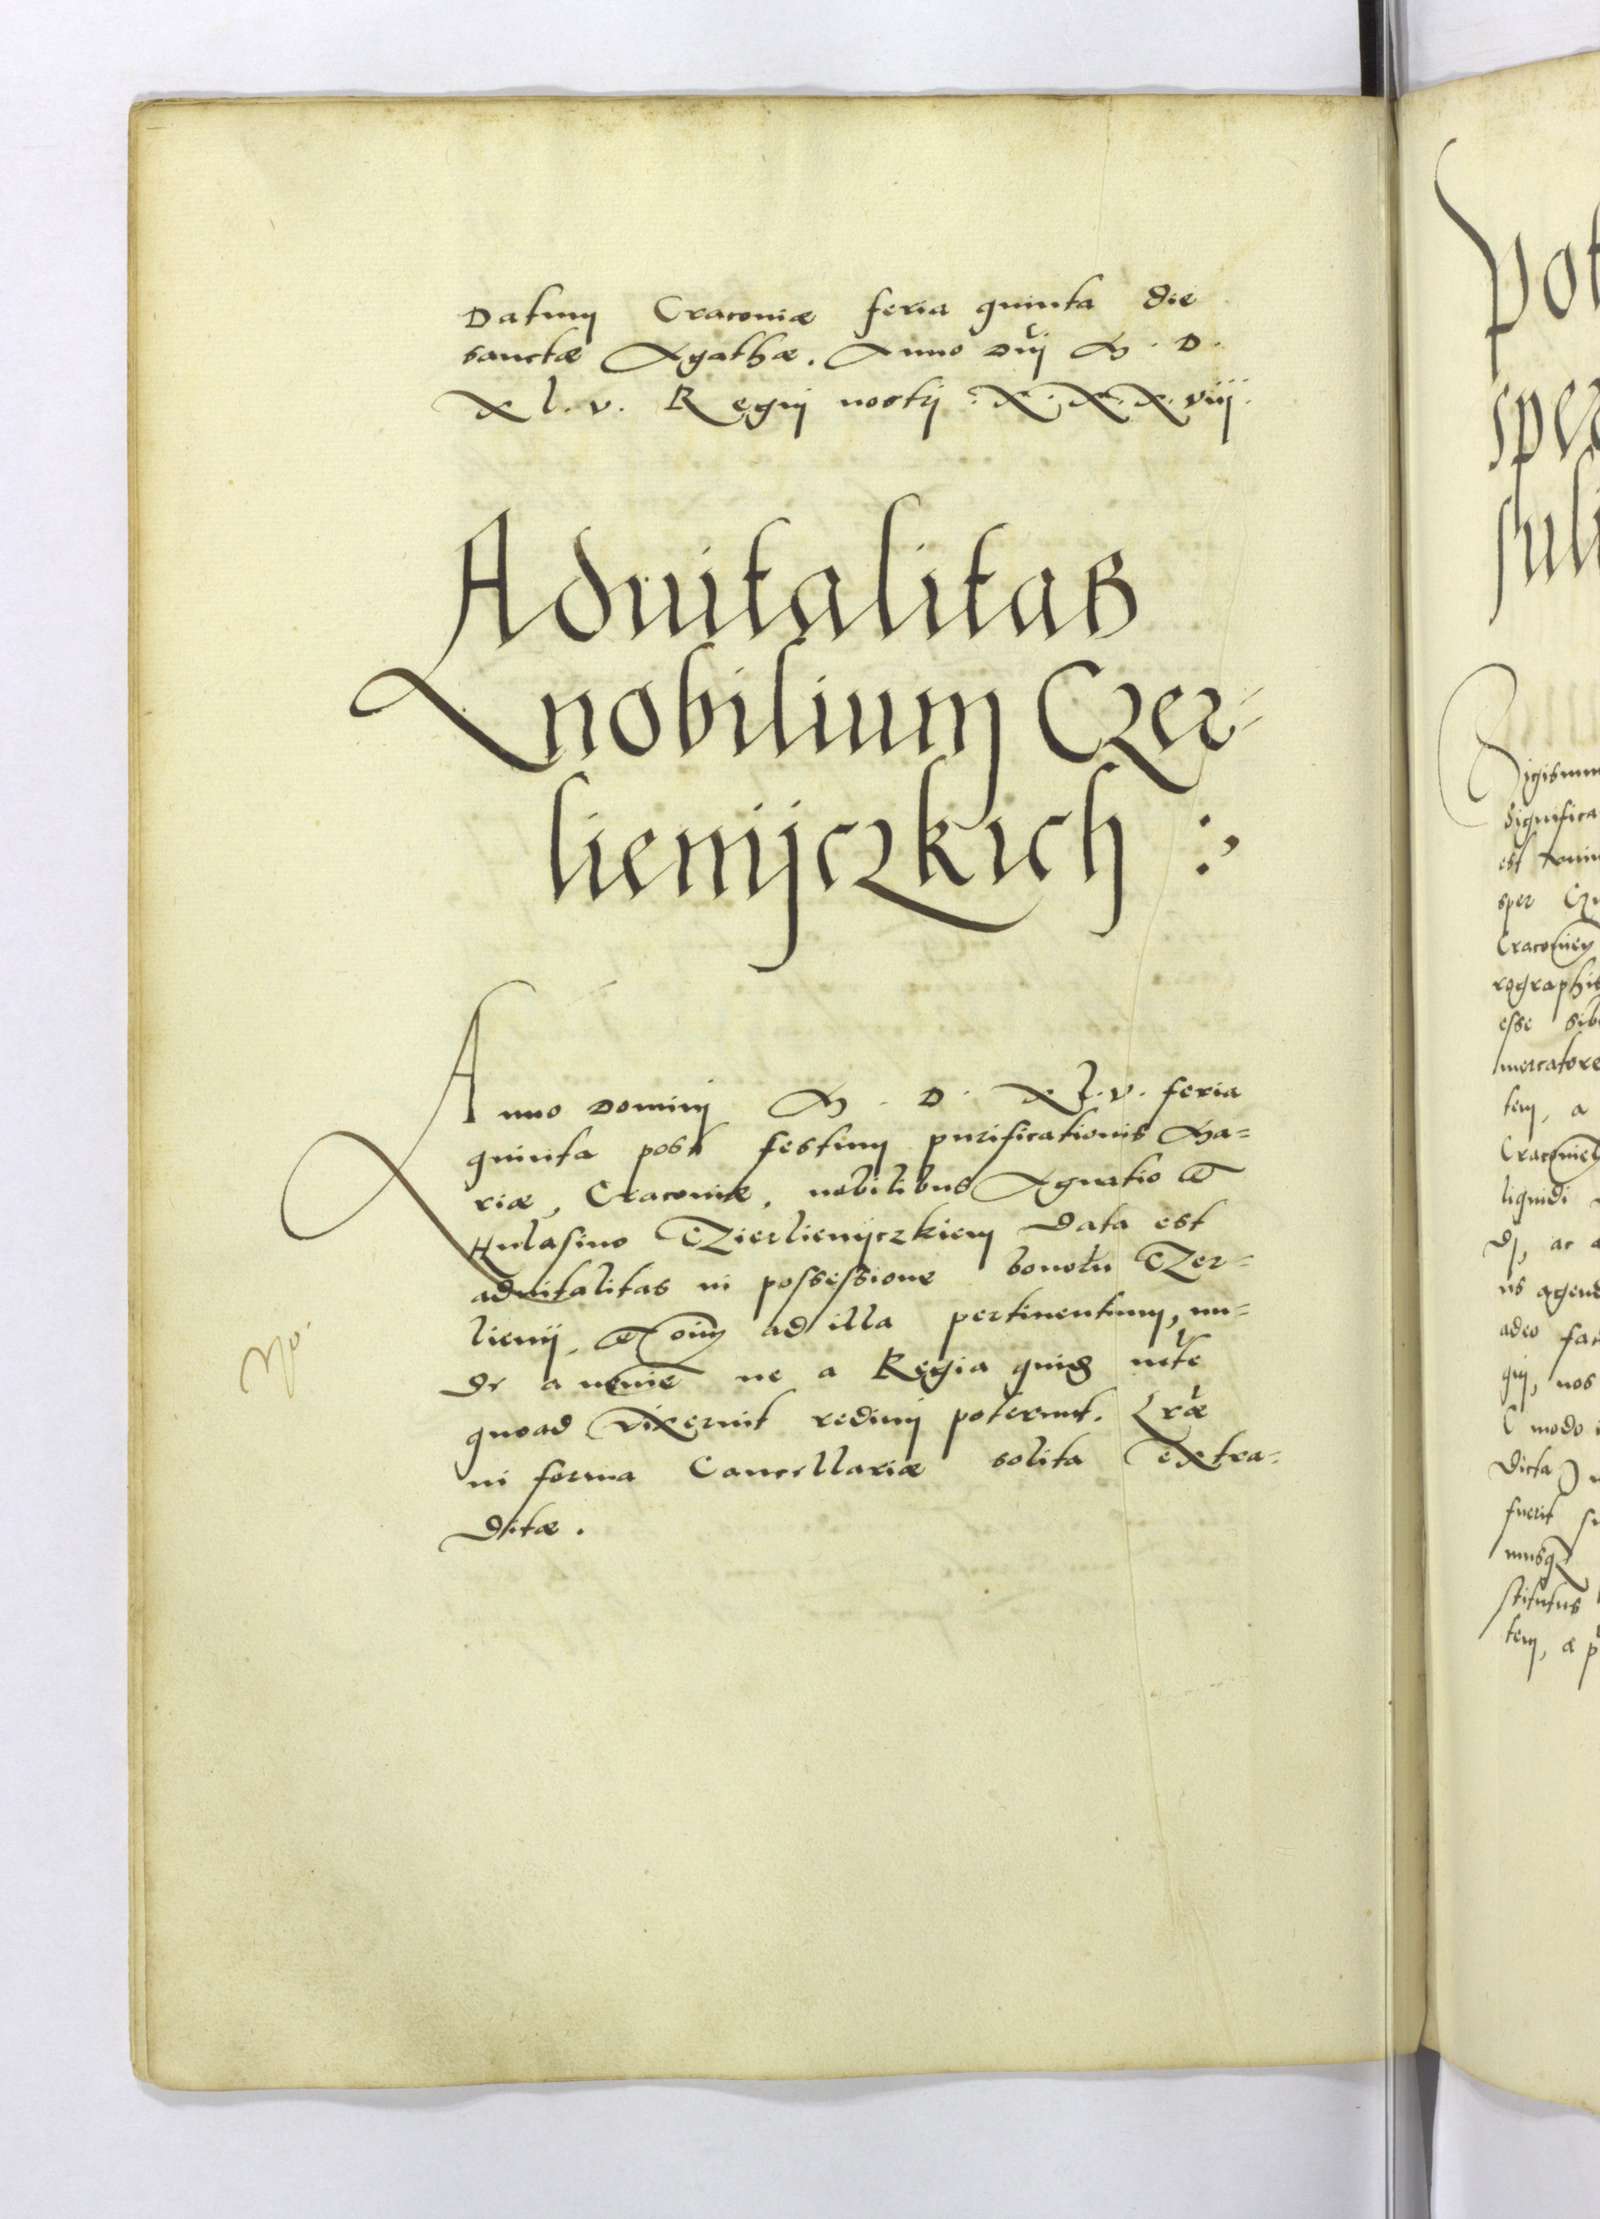 Datum Cracoviæ feria quinta die
sanctæ Agathæ. Anno Dñi M. D.
Xl.v. Regni nostri. X.X.X.viij.
Advitalitas
nobilium Czer-
lieniczkich :,
Anno domini M. D. Xl.v. feria
quinta post festum purificationis Ma=
riæ, Cracoviæ, nobilibus Agnatio et
Czierlieniczkiem data est
advitalitas in possessione bonoru Czer=
lienij, et oiūm ad illa pertinentium, un=
de a nemine ne a Regia quidē mtte
quoad vixerint redimi poterunt. Lræ
in forma Cancellariæ solita extra=
ditæ.
Pot
sper
Sigismun
Significa
est
sper
Cracovien
rographis
esse sib
mercatore
tem, a
Cracovien
liquidi
dj, ac a
us agend
adeo fac
nos
modo
dicta
fuerit
musq
stitutus
tem, a p